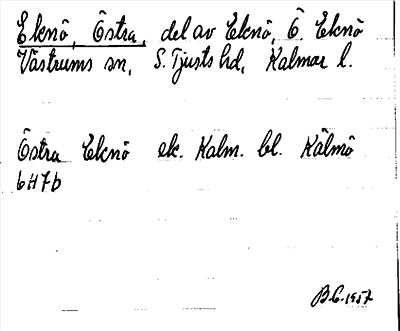 Eknö, Östra, del av Eknö, Ö. Eknö
Västrums sn, S. Tjusts hd, Kalmar l.
Östra Eknö ek. Kalm. bl. Kälmö
6H7b
B.G. 1957